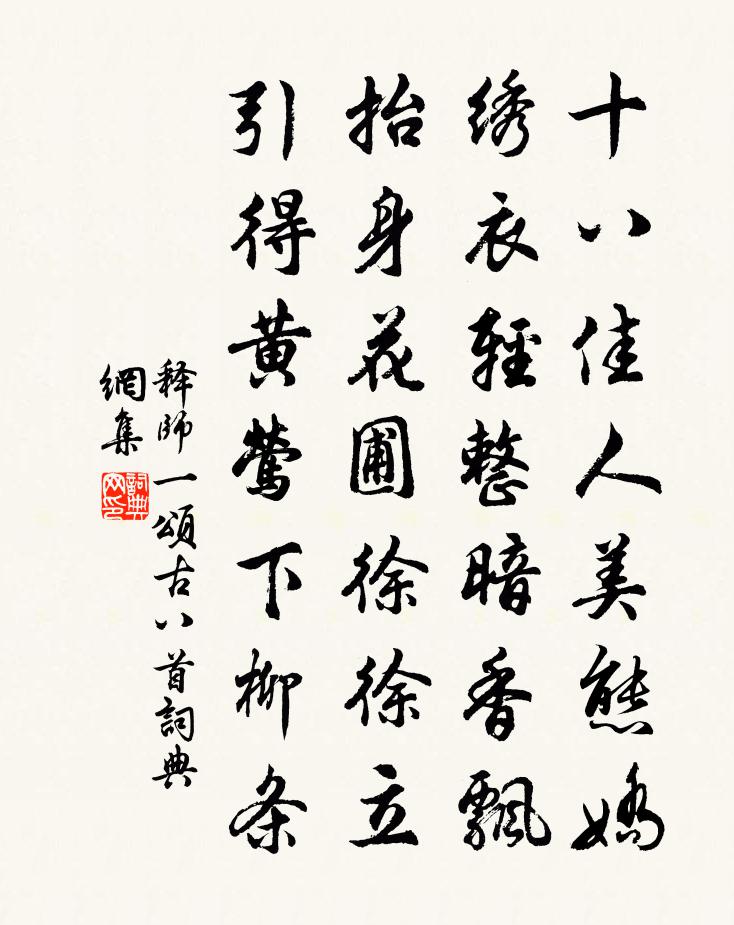 十八佳人美態嬌
绣衣輕整暗香飄
抬身花圃徐徐立
引得黄鶯下柳条
释師一頌古八首詞典
網集
詞典网印